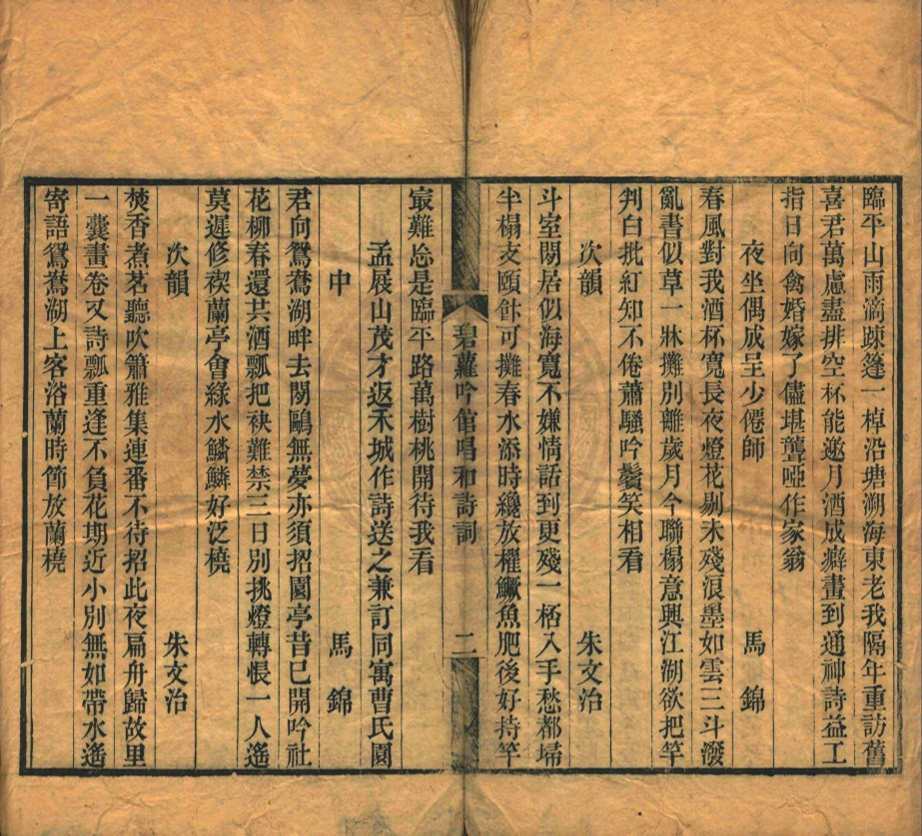 臨平山雨滴疎篷一棹沿塘溯海東老我隔年重訪舊
喜君萬慮盡排空杯能邀月酒成癖畫到通神詩益工
指日向禽婚嫁了儘堪聾啞作家翁
夜坐偶成呈少僊師　馬錦
春風對我酒杯寬長夜燈花剔未殘浪墨如雲三斗潑
亂書似草一牀攤別離歲月今聯榻意興江湖欲把竿
判白批紅知不倦蕭騷吟鬢笑相看
次韻　朱文治
斗室閒居似海寬不嫌情話到更殘一桮入手愁都埽
半榻支頤飰可攤春水添時纔放櫂鱖魚肥後好持竿
碧蘿吟館唱和詩詞　二
最難忘是臨平路萬樹桃開待我看
孟展山茂才返禾城作詩送之兼訂同寓曹氏園
中　馬錦
君向鴛鴦湖畔去閒鷗無夢亦須招園亭昔已開吟社
花柳春還共酒瓢把袂難禁三日別挑燈轉悵一人遙
莫遲修禊蘭亭會綠水鱗鱗好泛橈
次韻　朱文治
焚香煮茗聽吹簫雅集連番不待招此夜扁舟歸故里
一囊畫卷又詩瓢重逢不負花期近小別無如帶水遙
寄語鴛鴦湖上客浴蘭時節放蘭橈